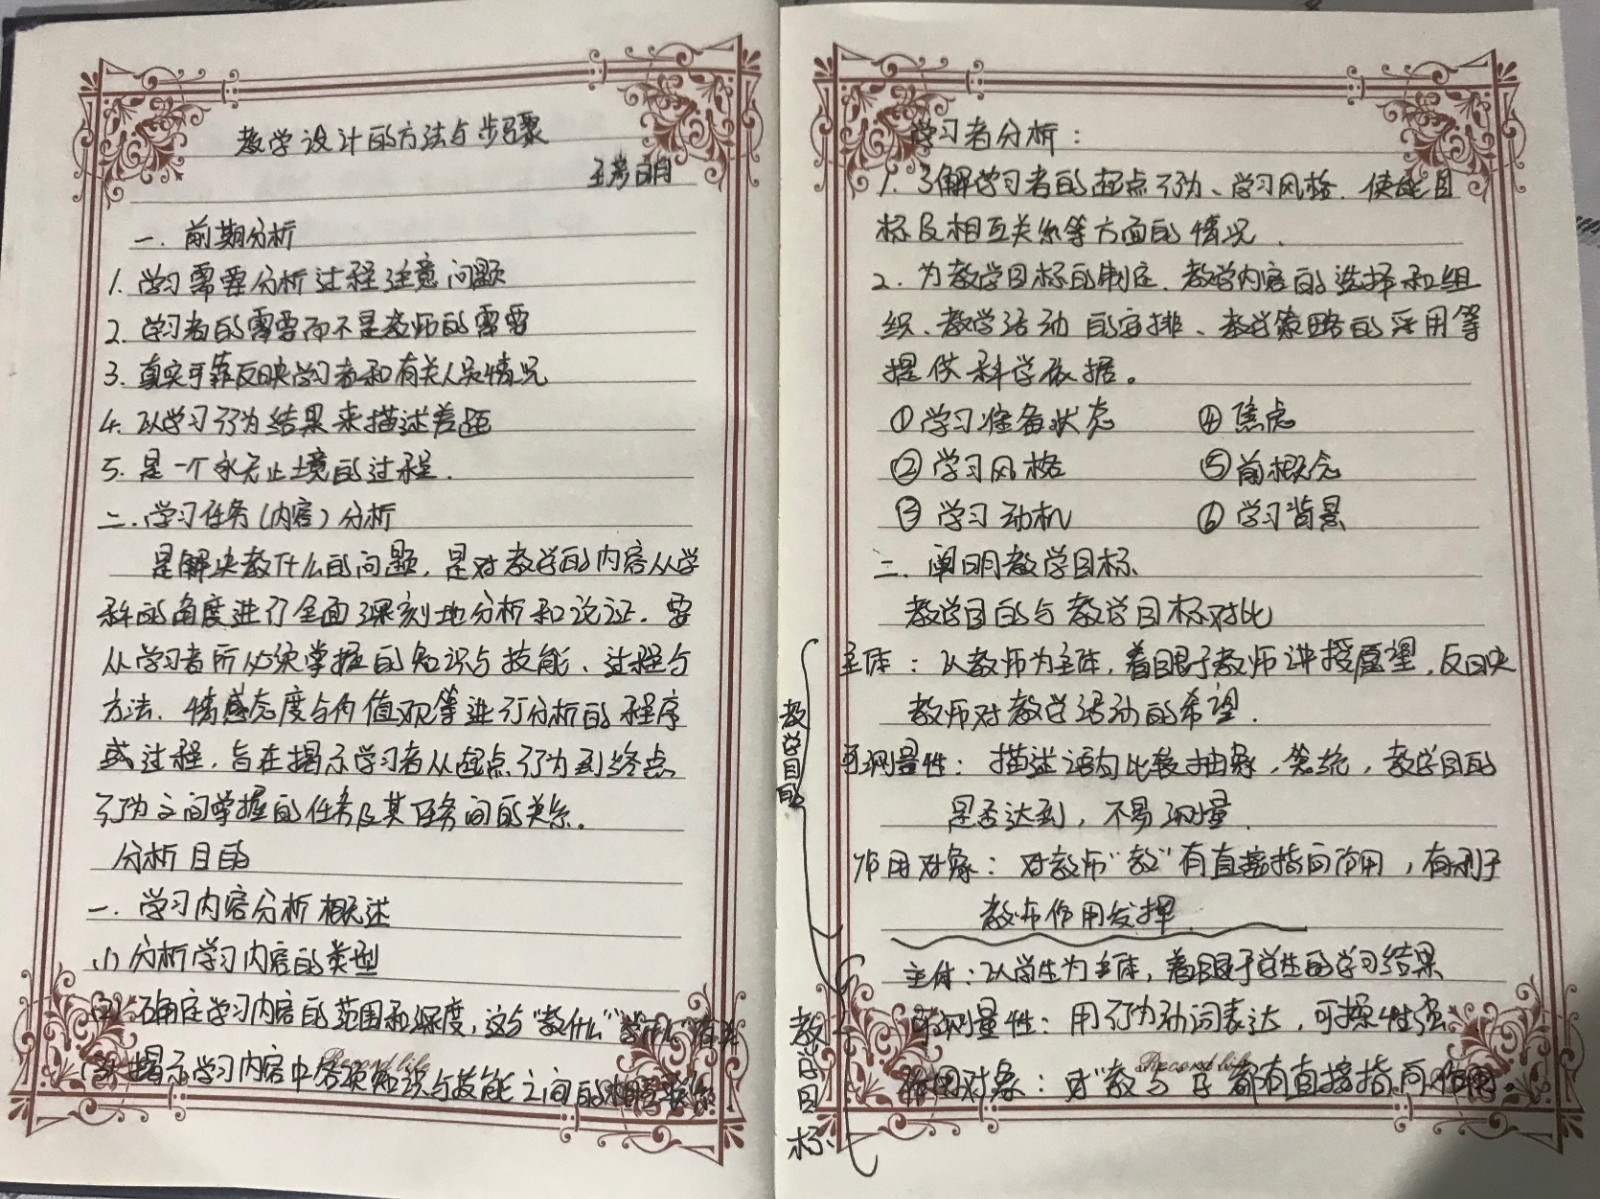 教学设计的方法与步骤
一.前期分析
1.学习需要分析过程注意问题
2.学习者的需要而不是教师的需要
3.真实可靠反映学习者和有关人员情况
4.以学习行为结果来描述差距
5.是一个永无止境的过程.
二.学习任务(内容)分析
是解决教什么的问题,是对教学的内容从学
科的角度进行全面深刻地分析和论证.要
从学习者所必须掌握的知识与技能、过程与
方法.情感态度与价值观等进行分析的程序
或过程,旨在揭示学习者从起点行为到终点
行为之间掌握的任务及其任务间的关系。
分析目的
一.学习内容分析概述
(1)分析学习内容的类型
(2)确定学习内容的范围和深度,这与"教什么""学什么"有关
(3)揭示学习内容中各项知识与技能之间的相互关系
Record life
学习者分析:
1.了解学习者的起点行为、学习风格.使能目
标及相互关系等方面的情况.
2.为教学目标的制定.教学内容的选择和组
织、教学活动的安排、教学策略的采用等
提供科学依据。
①学习准备状态 ④焦虑
②学习风格 ⑤前概念
③学习动机 ⑥学习背景
二.阐明教学目标
教学目的与教学目标对比
教学目的
主体:以教师为主体,着眼于教师讲授愿望,反映
教师对教学活动的希望.
可测量性:描述语句比较抽象,笼统,教学目的
是否达到,不易测量.
作用对象:对教师"教"有直接指向作用,有利于
教师作用发挥.
教学目标
主体:以学生为主体,着眼于学生的学习结果
可测量性:用行为动词表达,可操性强
作用对象:对"教与学都有直接指向作用.
Record life